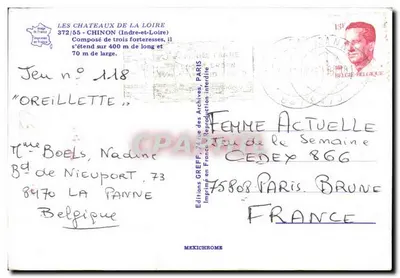 LES CHATEAUX DE LA LOIRE
372/55 - CHINON (Indre-et-Loire)
Composé de trois forteresses, il
s'étend sur 400 m de long et
70 m de large.
Jeu n° 118
"OREILLETTE"
Mme BOELS, Nadine
Bd de NIEUPORT, 73
8470 LA PANNE
Belgique
Editions GREFF, rue des Archives, PARIS
Imprimé en France - Reproduction interdite
BELGIË-BELGIQUE
FEMME ACTUELLE
Jeu de la Semaine
CEDEX 866
75808 PARIS BRUNE
FRANCE
MEXICHROME